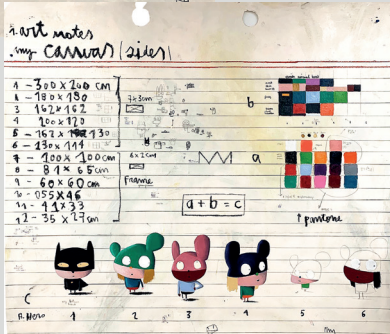 art notes
my canvas (sizes)
1 - 300 x 200 cm
2 - 180 x 150
3 - 162 x 162
4 100 x 120
5 - 162 x 130
6 - 130 x 114
7 - 100 x 100 cm
8 - 81 x 65 cm
9 - 60 x 60 cm
10 - 055 x 46
11 - 41 x 33
12 - 35 x 27 cm
7 x 3 cm
6 x 2 cm
Frame
b
a
a + b = c
↑ pantone
C
R. Hero 1 2 3 4 5 6